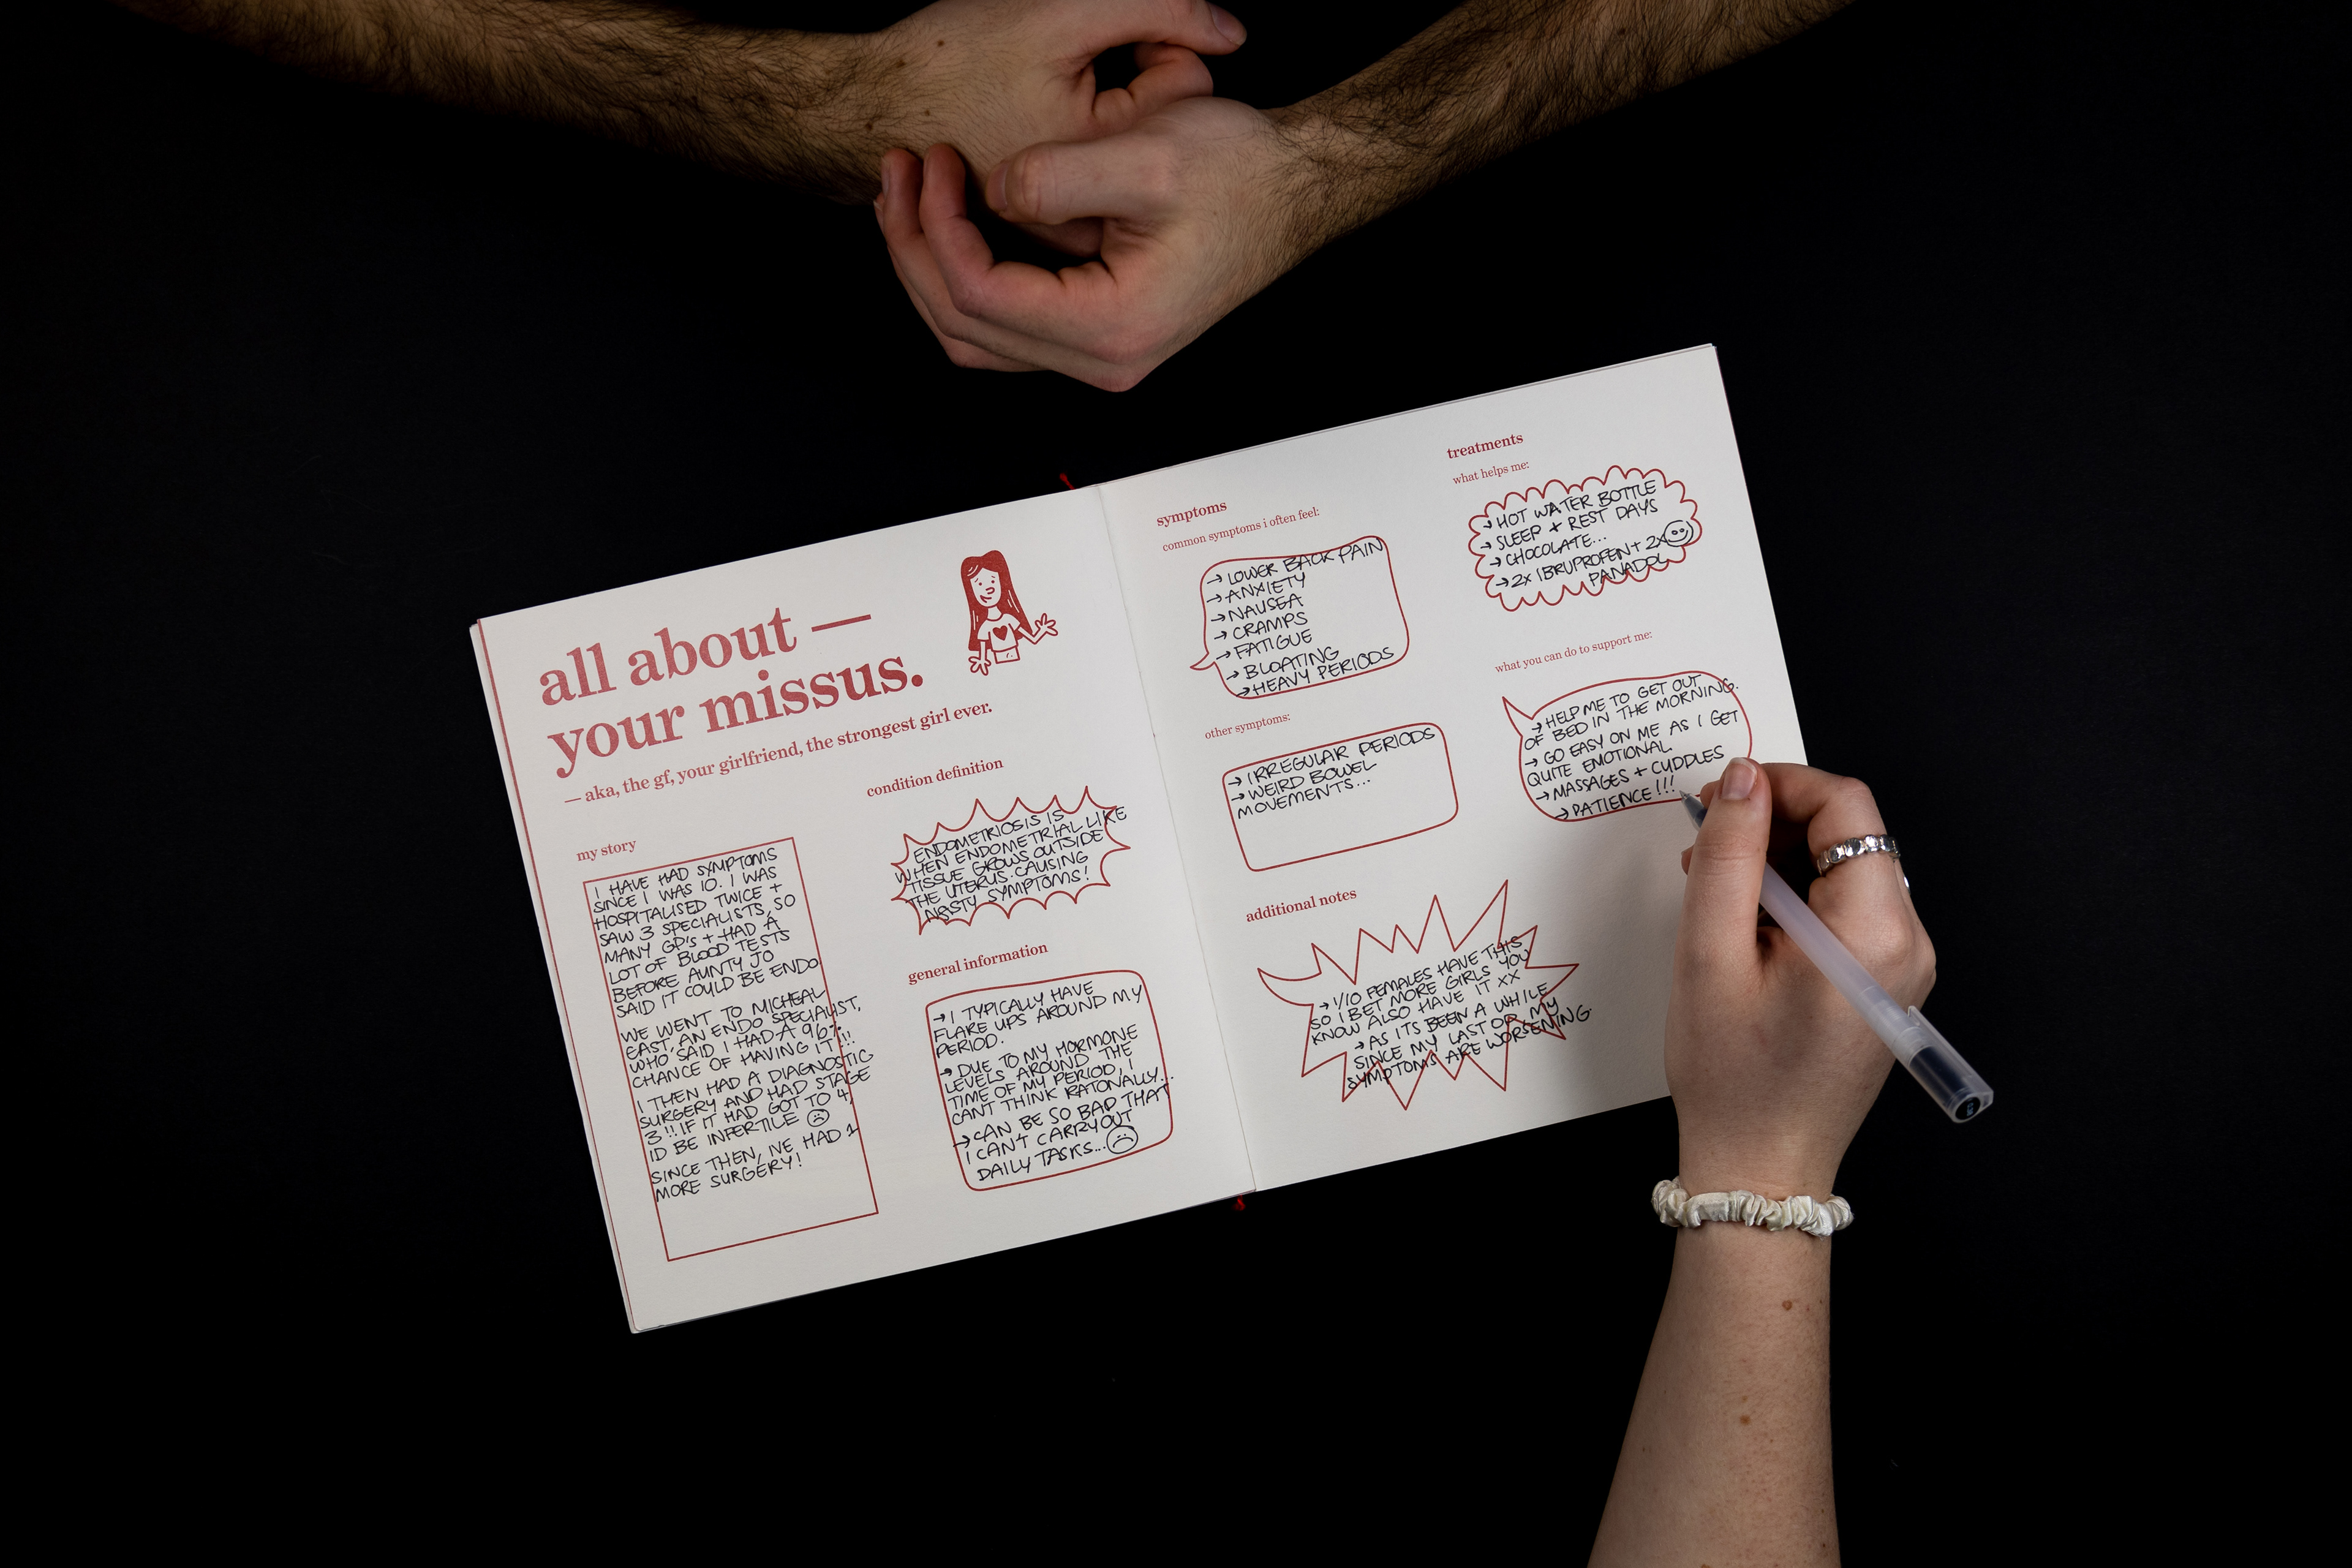 all about —
your missus.
— aka, the gf, your girlfriend, the strongest girl ever.
my story
I HAVE HAD SYMPTOMS
SINCE I WAS 10. I WAS
HOSPITALISED TWICE +
SAW 3 SPECIALISTS, SO
MANY GP'S + HAD A
LOT OF BLOOD TESTS
BEFORE AUNTY JO
SAID IT COULD BE ENDO
WE WENT TO MICHEAL
EAST, AN ENDO SPECIALIST,
WHO SAID I HAD A 96%
CHANCE OF HAVING IT!!!
I THEN HAD A DIAGNOSTIC
SURGERY AND HAD STAGE
3!! IF IT HAD GOT TO 4,
ID BE INFERTILE
SINCE THEN, IVE HAD 1
MORE SURGERY!
condition definition
ENDOMETRIOSIS IS
WHEN ENDOMETRIAL LIKE
TISSUE GROWS OUTSIDE
THE UTERUS. CAUSING
NASTY SYMPTOMS!
general information
→ I TYPICALLY HAVE
FLARE UPS AROUND MY
PERIOD.
→ DUE TO MY HORMONE
LEVELS AROUND THE
TIME OF MY PERIOD, I
CANT THINK RATONALLY...
→ CAN BE SO BAD THAT
I CAN'T CARRY OUT
DAILY TASKS...
symptoms
common symptoms i often feel:
→ LOWER BACK PAIN
→ ANXIETY
→ NAUSEA
→ CRAMPS
→ FATIGUE
→ BLOATING
→ HEAVY PERIODS
other symptoms:
→ IRREGULAR PERIODS
→ WEIRD BOWEL
MOVEMENTS...
additional notes
→ 1/10 FEMALES HAVE THIS
SO I BET MORE GIRLS YOU
KNOW ALSO HAVE IT XX
→ AS ITS BEEN A WHILE
SINCE MY LAST OP, MY
SYMPTOMS ARE WORSENING.
treatments
what helps me:
→ HOT WATER BOTTLE
→ SLEEP + REST DAYS
→ CHOCOLATE...
→ 2x IBRUPROFEN + 2x
PANADOL
what you can do to support me:
→ HELP ME TO GET OUT
OF BED IN THE MORNING.
→ GO EASY ON ME AS I GET
QUITE EMOTIONAL
→ MASSAGES + CUDDLES
→ PATIENCE!!!